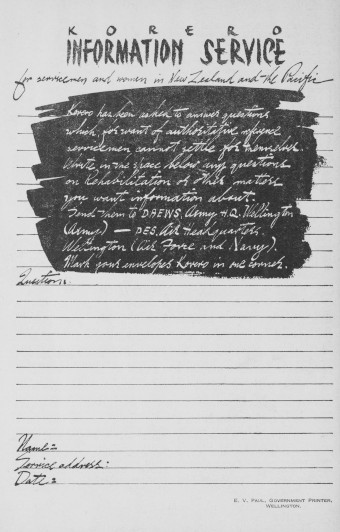 KORERO
INFORMATION SERVICE
for servicemen and women in New Zealand and the Pacific
Korero has been asked to answer questions
which for want of authoritative reference
servicemen cannot settle for themselves.
Write in the space below any questions
on Rehabilitation or other matters
you want information about.
Send them to DAEWS, Army H.Q. Wellington
(Army) — DES. Air Headquarters.
Wellington (Air Force and Navy).
Mark your envelopes Korero in one corner.
Question:
Name=
Service address:
Date=
E. V. PAUL, GOVERNMENT PRINTER,
WELLINGTON.